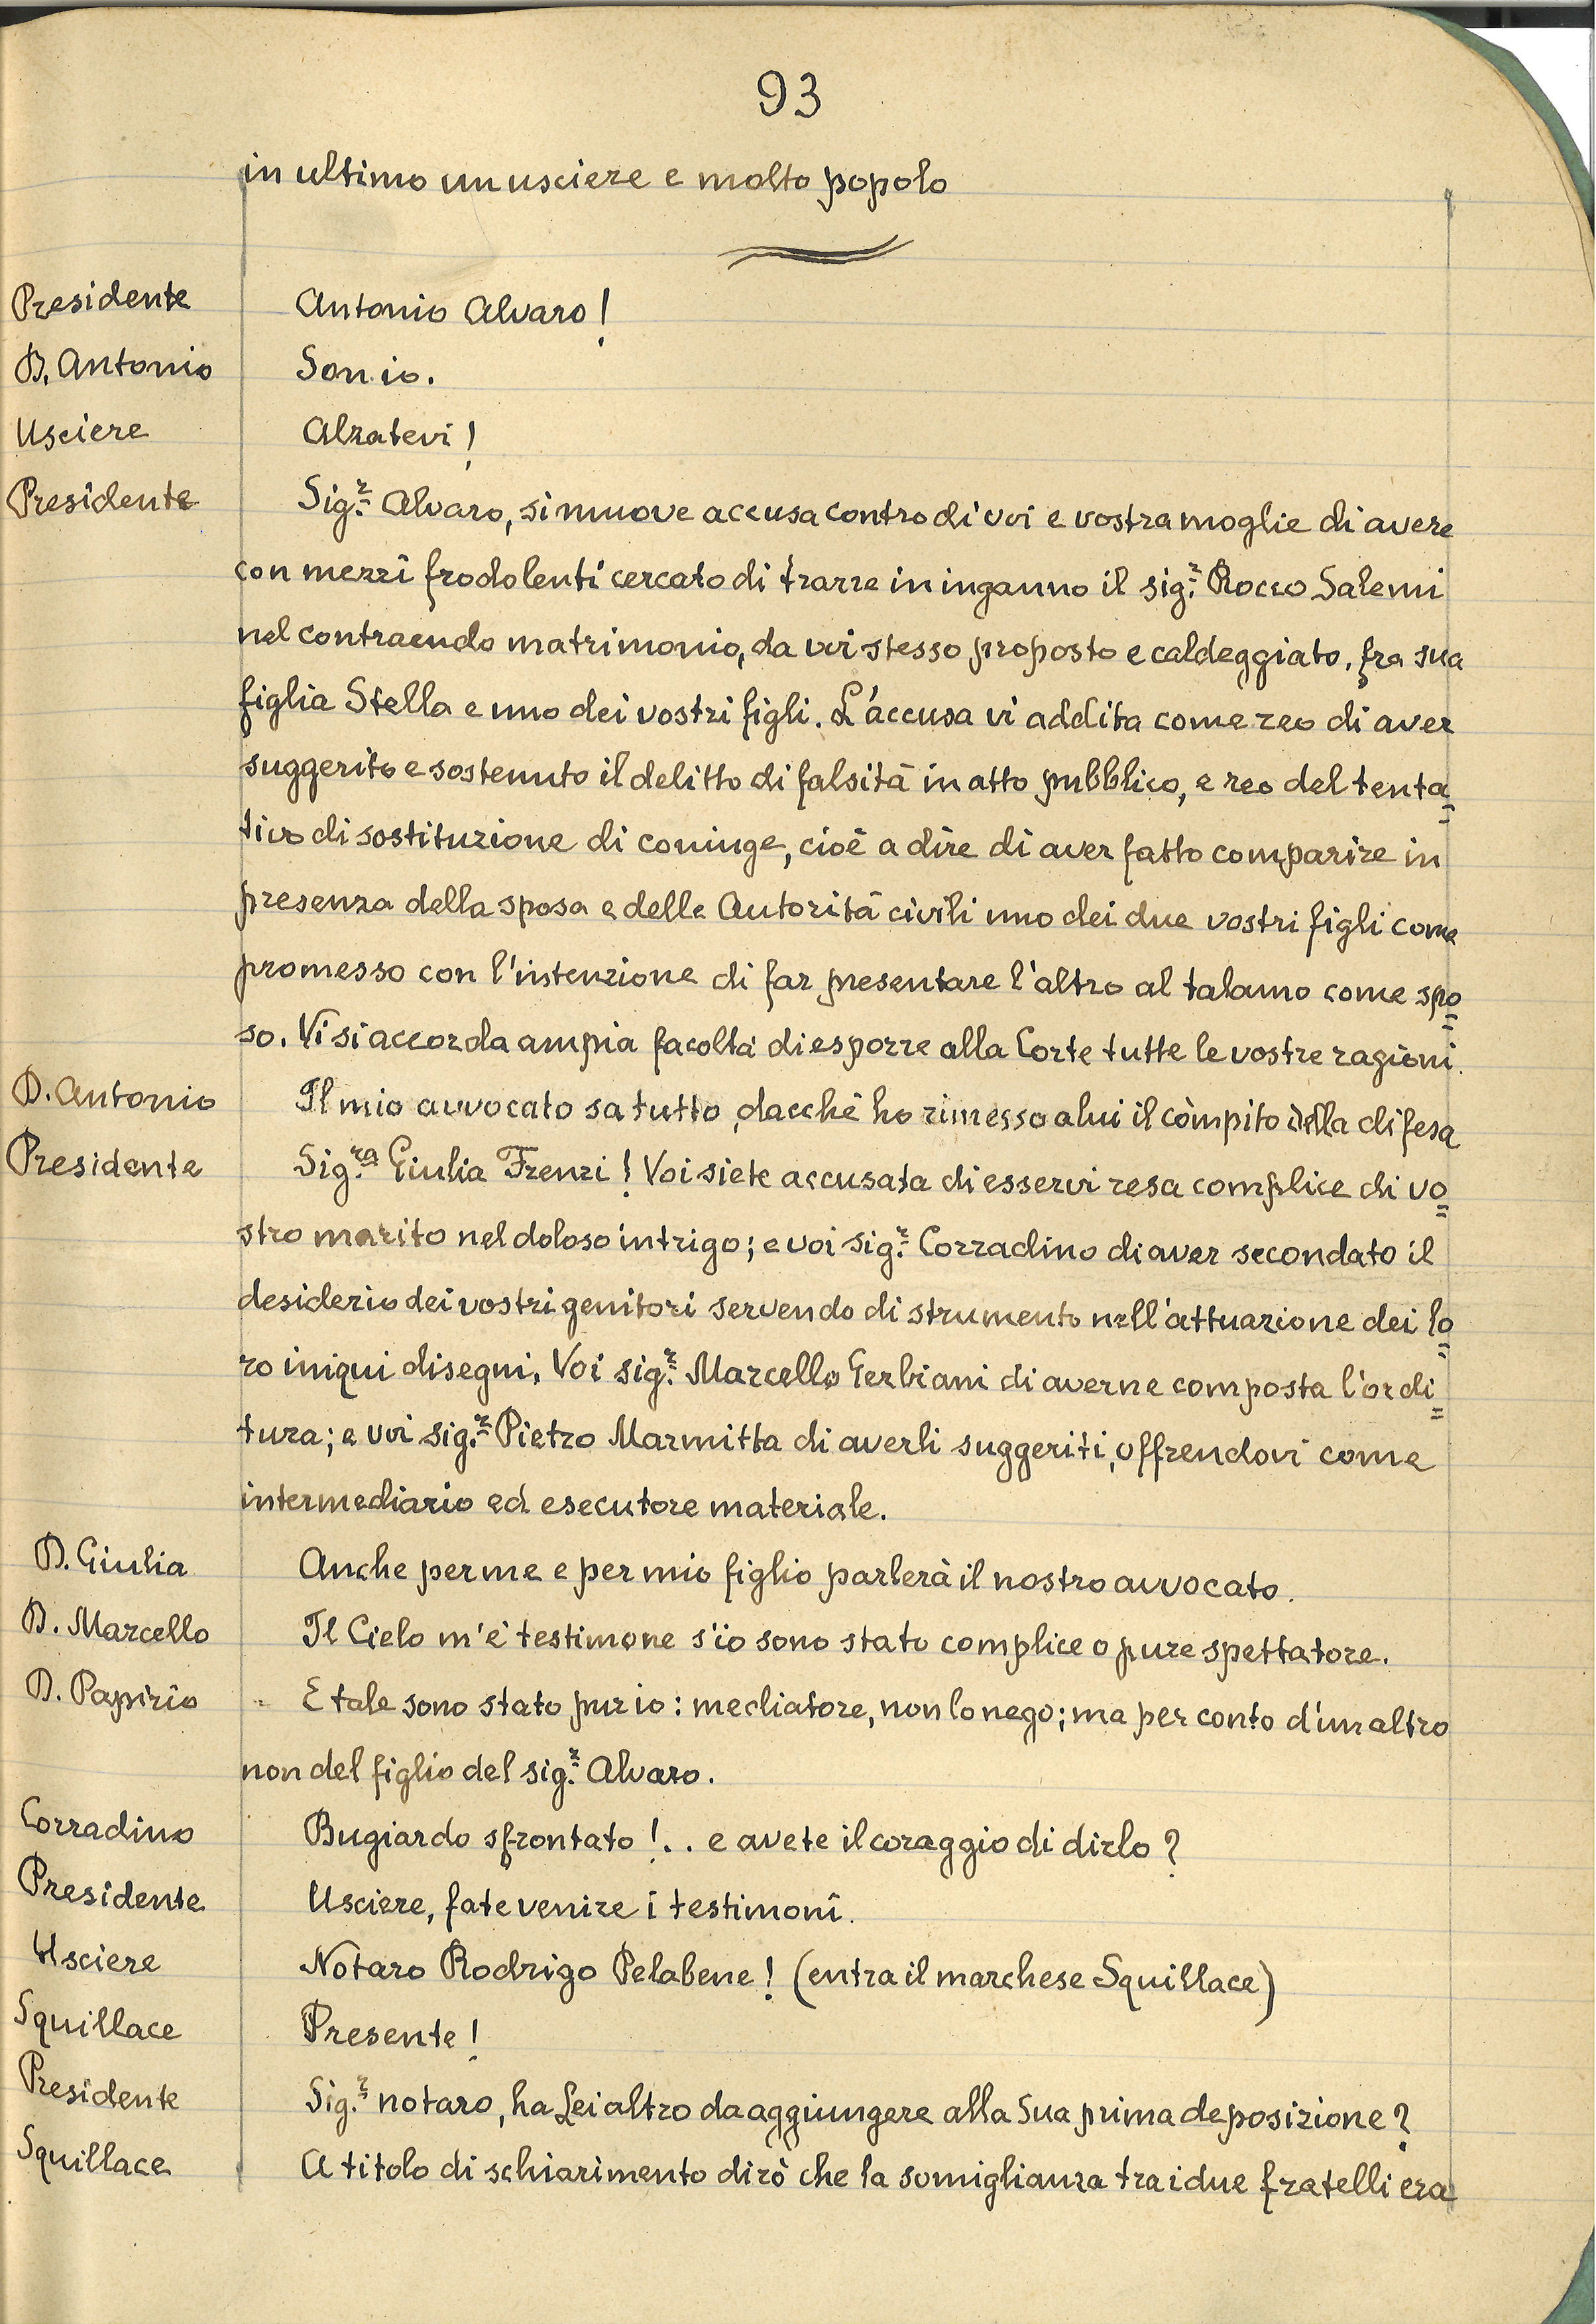 93
in ultimo un usciere e molto popolo
Presidente Antonio Alvaro!
D. Antonio Son io.
Usciere Alzatevi!
Presidente Sig.r Alvaro, si muove accusa contro di voi e vostra moglie di avere
con mezzi frodolenti cercato di trarre in inganno il sig.r Rocco Salemi
nel contraendo matrimonio, da voi stesso proposto e caldeggiato, fra sua
figlia Stella e uno dei vostri figli. L'accusa vi addita come reo di aver
suggerito e sostenuto il delitto di falsità in atto pubblico, e reo del tenta=
tivo di sostituzione di coniuge, cioè a dire di aver fatto comparire in
presenza della sposa e delle Autorità civili uno dei due vostri figli come
promesso con l'intenzione di far presentare l'altro al talamo come spo=
so. Vi si accorda ampia facoltà di esporre alla Corte tutte le vostre ragioni.
D. Antonio Il mio avvocato sa tutto, dacchè ho rimesso a lui il còmpito della difesa
Presidente Sig.ra Giulia Frenzi! Voi siete accusata di esservi resa complice di vo=
stro marito nel doloso intrigo; e voi sig.r Corradino di aver secondato il
desiderio dei vostri genitori servendo di strumento nell'attuazione dei lo=
ro iniqui disegni. Voi sig.r Marcello Gerbiani di averne composta l'ordi=
tura; e voi sig.r Pietro Marmitta di averli suggeriti, offrendovi come
intermediario ed esecutore materiale.
D. Giulia Anche per me e per mio figlio parlerà il nostro avvocato.
D. Marcello Il Cielo m'è testimone s'io sono stato complice o pure spettatore.
D. Papirio E tale sono stato pur io: mediatore, non lo nego; ma per conto d'un altro
non del figlio del sig.r Alvaro.
Corradino Bugiardo sfrontato!.. e avete il coraggio di dirlo?
Presidente Usciere, fate venire i testimonî.
Usciere Notaro Rodrigo Pelabene! (entra il marchese Squillace)
Squillace Presente!
Presidente Sig.r notaro, ha Lei altro da aggiungere alla Sua prima deposizione?
Squillace A titolo di schiarimento dirò che la somiglianza tra i due fratelli era